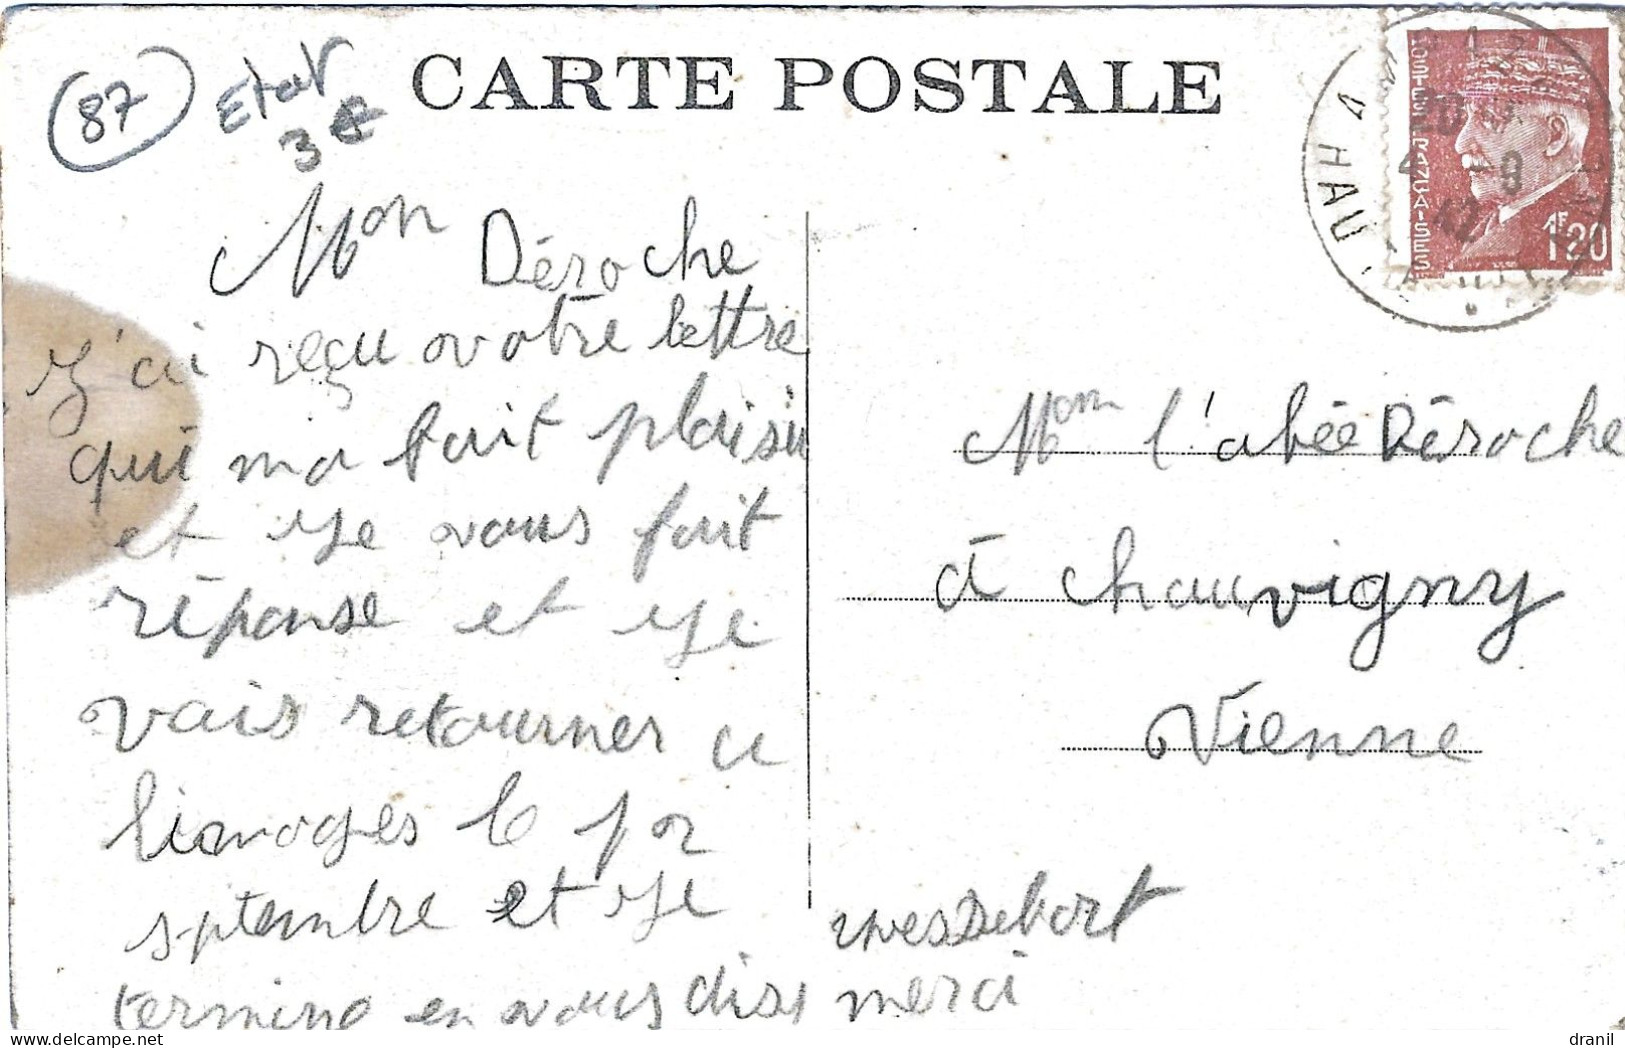 87
Etat
3€
CARTE POSTALE
POSTES FRANÇAISES
AF
1.20
V HAU
9
42
Mon Déroche
J'ai reçu votre lettre
qui ma fait plaisir
et je vous fait
réponse et je
vais retourner a
limoges le
sptembre et je
termine en vous dise
merci
yves Debort
Mon l'abée Déroche
à Chauvigny
Vienne
dranil